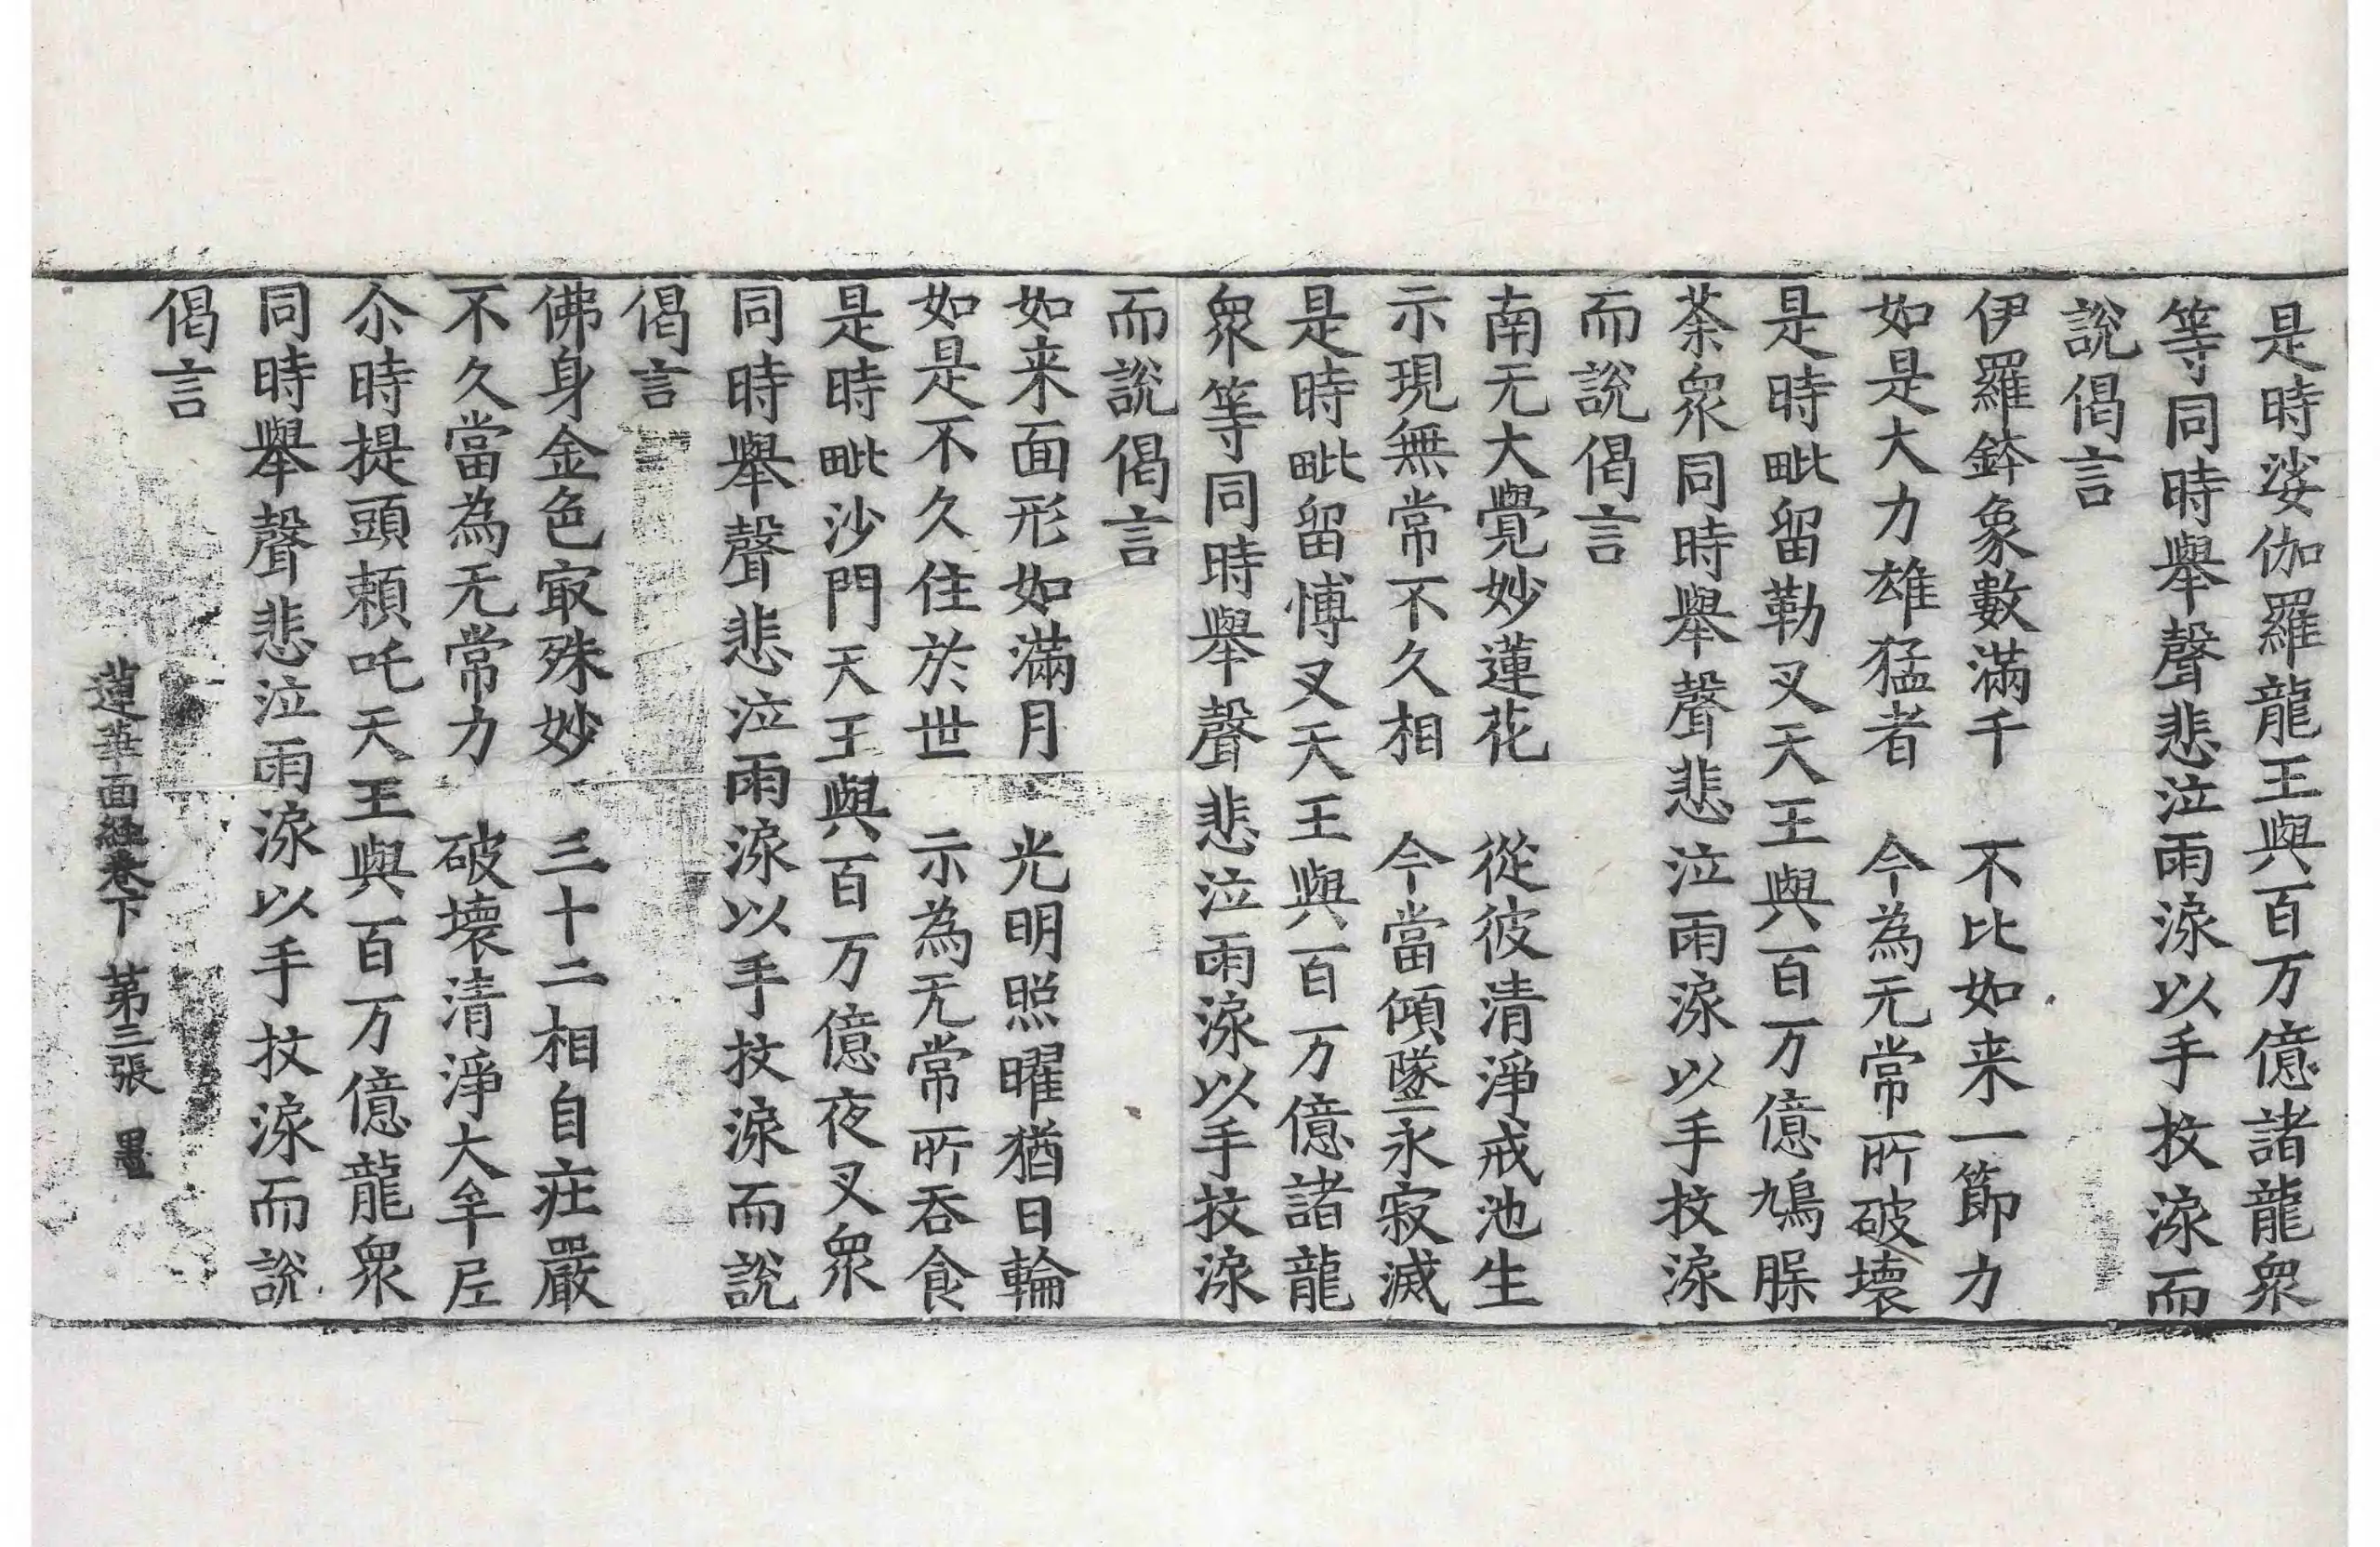 是時娑伽羅龍王與百万億諸龍衆
等同時舉聲悲泣雨淚以手抆淚而
說偈言
伊羅鉢象數滿千　不比如来一節力
如是大力雄猛者　今為无常所破壞
是時毗留勒叉天王與百万億鳩脲
荼衆同時舉聲悲泣雨淚以手抆淚
而說偈言
南无大覺妙蓮花　從彼清淨戒池生
示現無常不久相　今當傾墜永寂滅
是時毗留愽叉天王與百万億諸龍
衆等同時舉聲悲泣雨淚以手抆淚
而說偈言
如来面形如滿月　光明照曜猶日輪
如是不久住於世　示為无常所吞食
是時毗沙門天王與百万億夜叉衆
同時舉聲悲泣雨淚以手抆淚而說
偈言
佛身金色㝡殊妙　三十二相自莊嚴
不久當為无常力　破壞清淨大牟尼
尒時提頭賴吒天王與百万億龍衆
同時舉聲悲泣雨淚以手抆淚而說
偈言
蓮華面經卷下　第三張　墨